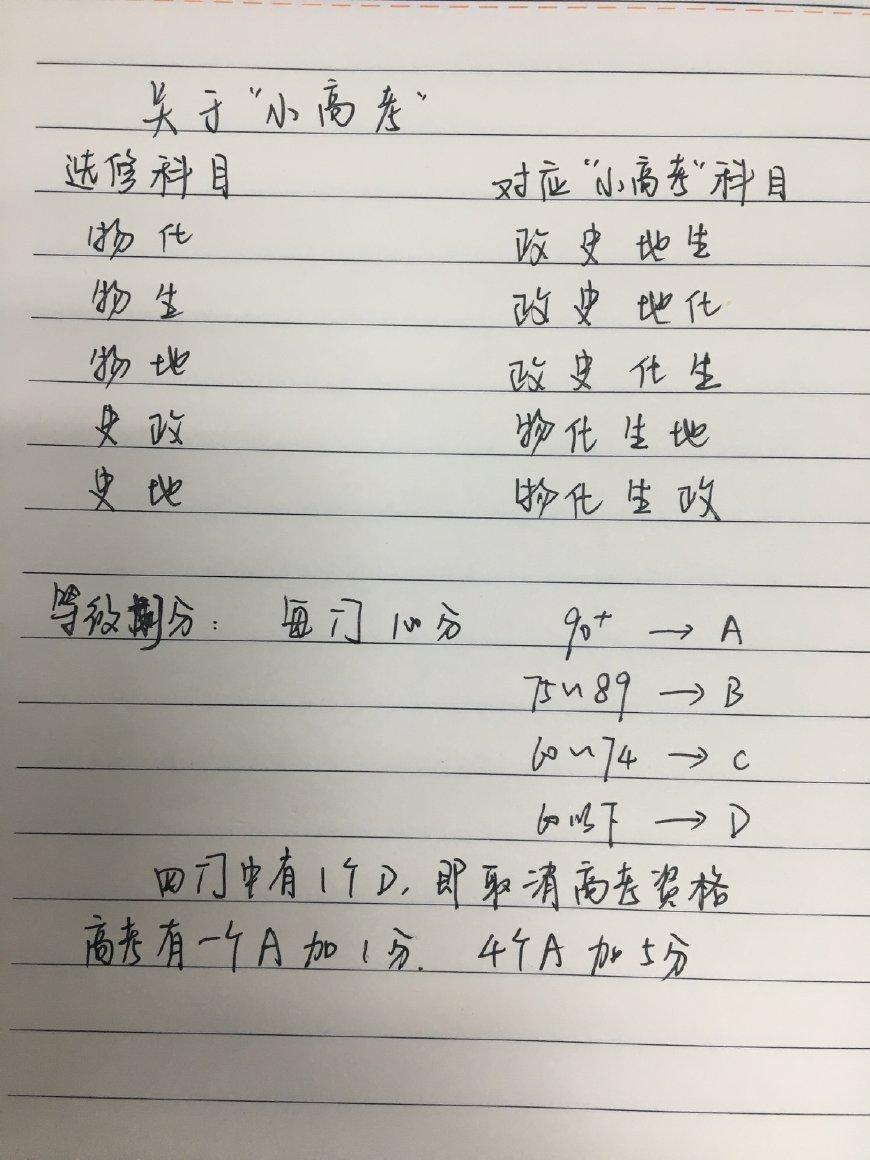 关于“小高考”
选修科目 对应“小高考”科目
物化 政史地生
物生 政史地化
物地 政史化生
史政 物化生地
史地 物化生政
等级划分: 每门100分 90+ → A
75~89 → B
60~74 → C
60以下 → D
四门中有1个D,即取消高考资格
高考有一个A加1分. 4个A加5分